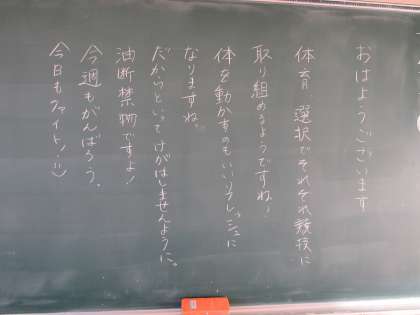 おはようございます
体育 選択でそれぞれ競技に
取り組めるようですね!
体を動かすのもいいリフレッシュに
なりますね。
だからといってけがはしませんように。
油断禁物ですよ!
今週もがんばろう。
今日もファイト!:)